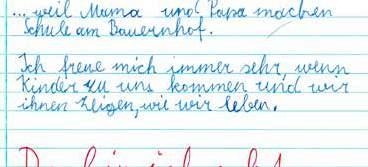 ... weil Mama und Papa machen
Schule am Bauernhof.
Ich freue mich immer sehr, wenn
Kinder zu uns kommen und wir
ihnen zeigen, wie wir leben.